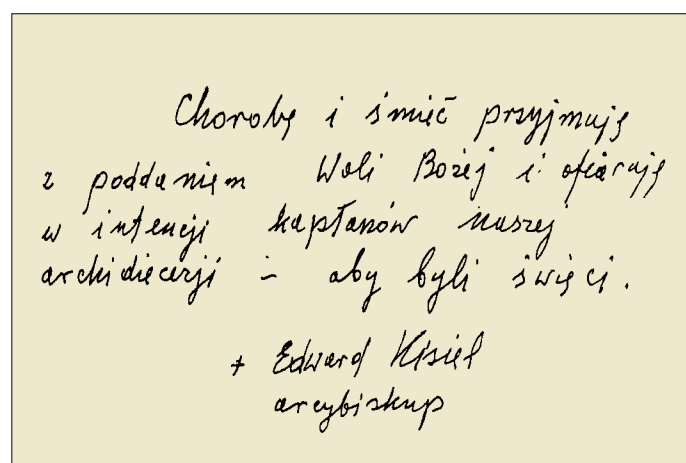 Chorobę i śmierć przyjmuję
z poddaniem Woli Bożej i ofiaruję
w intencji kapłanów naszej
archidiecezji – aby byli święci.
+ Edward Kisiel
arcybiskup